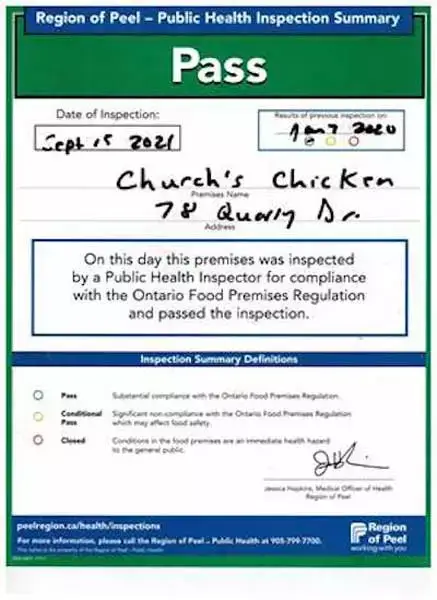 Region of Peel – Public Health Inspection Summary
Pass
Date of Inspection:
Sept 15 2021
Results of previous inspection on:
Jan 7 2020
Church's Chicken
Premises Name
78 Quarry Dr.
Address
On this day this premises was inspected
by a Public Health Inspector for compliance
with the Ontario Food Premises Regulation
and passed the inspection.
Inspection Summary Definitions
Pass
Substantial compliance with the Ontario Food Premises Regulation.
Conditional Pass
Significant non-compliance with the Ontario Food Premises Regulation
which may affect food safety.
Closed
Conditions in the food premises are an immediate health hazard
to the general public.
Jessica Hopkins, Medical Officer of Health
Region of Peel
peelregion.ca/health/inspections
For more information, please call the Region of Peel – Public Health at 905-799-7700.
This notice is the property of the Region of Peel – Public Health
Region
of Peel
working with you